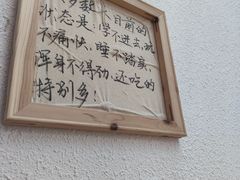 多数人目前的
状态是:学不进去,玩
不痛快、睡不踏实、
浑身不得劲、还吃的
特别多!